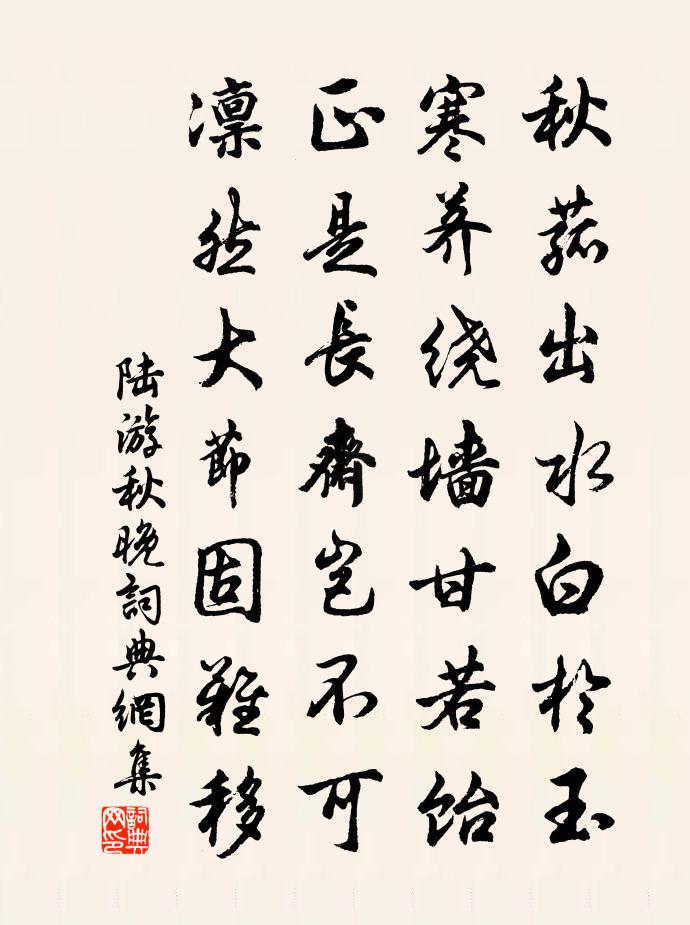 秋菰出水白於玉
寒荠绕墙甘若饴
正是長齋豈不可
凛然大節固難移
陆游秋晚詞典網集
詞典网印